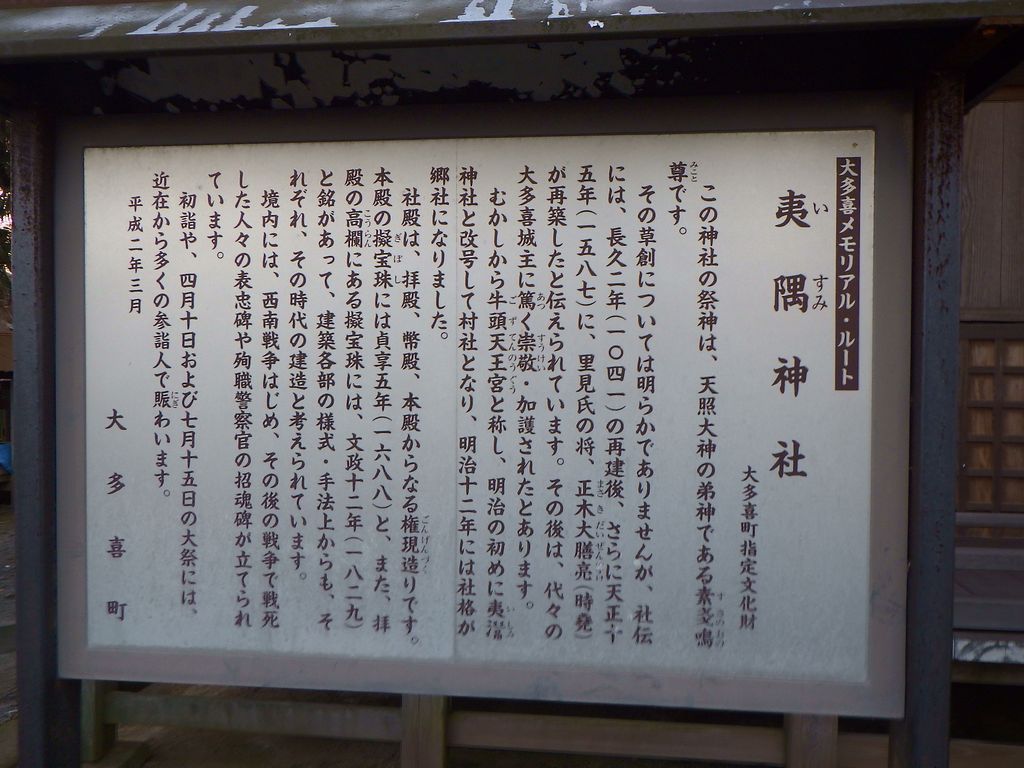 大多喜メモリアル・ルート
夷隅神社
いすみ
大多喜町指定文化財
この神社の祭神は、天照大神の弟神である素戔嗚
すさのおの
尊です。
みこと
その草創については明らかでありませんが、社伝
には、長久二年(一〇四一)の再建後、さらに天正十
五年(一五八七)に、里見氏の将、正木大膳亮(時堯)
まさきだいぜんのすけ
が再築したと伝えられています。その後は、代々の
大多喜城主に篤く崇敬・加護されたとあります。
あつ すうけい
むかしから牛頭天王宮と称し、明治の初めに夷隅
ごずてんのうぐう いしみ
神社と改号して村社となり、明治十二年には社格が
郷社になりました。
社殿は、拝殿、幣殿、本殿からなる権現造りです。
ごんげんづく
本殿の擬宝珠には貞享五年(一六八八)と、また、拝
ぎぼし
殿の高欄にある擬宝珠には、文政十二年(一八二九)
こうらん
と銘があって、建築各部の様式・手法上からも、そ
れぞれ、その時代の建造と考えられています。
境内には、西南戦争はじめ、その後の戦争で戦死
した人々の表忠碑や殉職警察官の招魂碑が立てられ
ています。
初詣や、四月十日および七月十五日の大祭には、
近在から多くの参詣人で賑わいます。
にぎ
平成二年三月
大多喜町